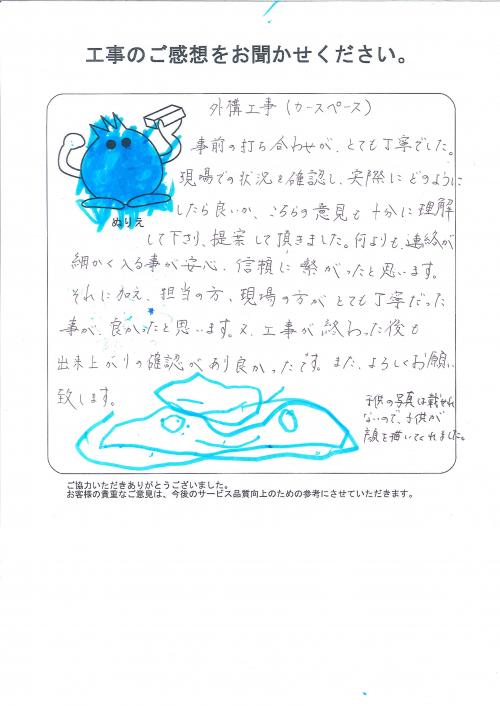 工事のご感想をお聞かせください。
外構工事(カースペース)
事前の打ち合わせが、とても丁寧でした。
現場での状況を確認し、実際にどのように
したら良いか、こちらの意見も十分に理解
ぬりえ
して下さり、提案して頂きました。何よりも、連絡が
細かく入る事が安心、信頼に繋がったと思います。
それに加え、担当の方、現場の方がとても丁寧だった
事が、良かったと思います。又、工事が終わった後も
出来上がりの確認があり良かったです。また、よろしくお願い
致します。
子供の写真は載せれ
ないので、子供が
顔を描いてくれました。
ご協力いただきありがとうございました。
お客様の貴重なご意見は、今後のサービス品質向上のための参考にさせていただきます。